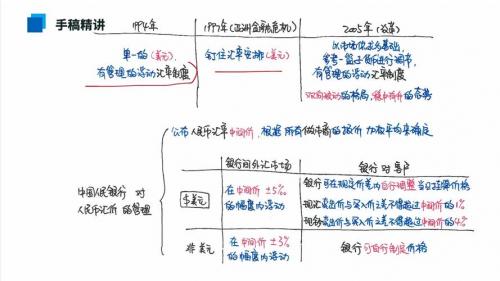 手稿精讲
1994年
1997年(亚洲金融危机)
2005年(汇改)
单一的(美元),
有管理的浮动汇率制度
钉住汇率安排(美元)
以市场供求为基础,
参考一篮子货币进行调节,
有管理的浮动汇率制度
双向波动的格局,稳中有升的态势
中国人民银行对
人民币汇价的管理
公布人民币汇率中间价,根据所有做市商的报价加权平均来确定
银行间外汇市场
银行对客户
美元
在中间价±5‰
的幅度内浮动
银行可在规定价差内自行调整当日挂牌价格
现汇卖出价与买入价之差不得超过中间价的1%
现钞卖出价与买入价之差不得超过中间价的4%
非美元
在中间价±3%
的幅度内浮动
银行可自行制定价格